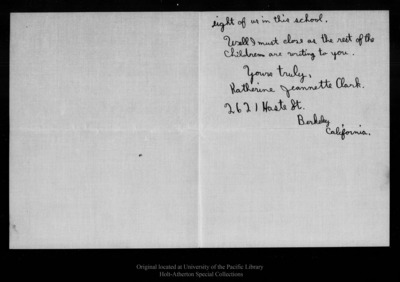 eight of us in this school.
Well I must close as the rest of the
children are writing to you.
Yours truly,
Katherine Jeannette Clark.
2621 Haste St.
Berkeley
California.
Original located at University of the Pacific Library
Holt-Atherton Special Collections